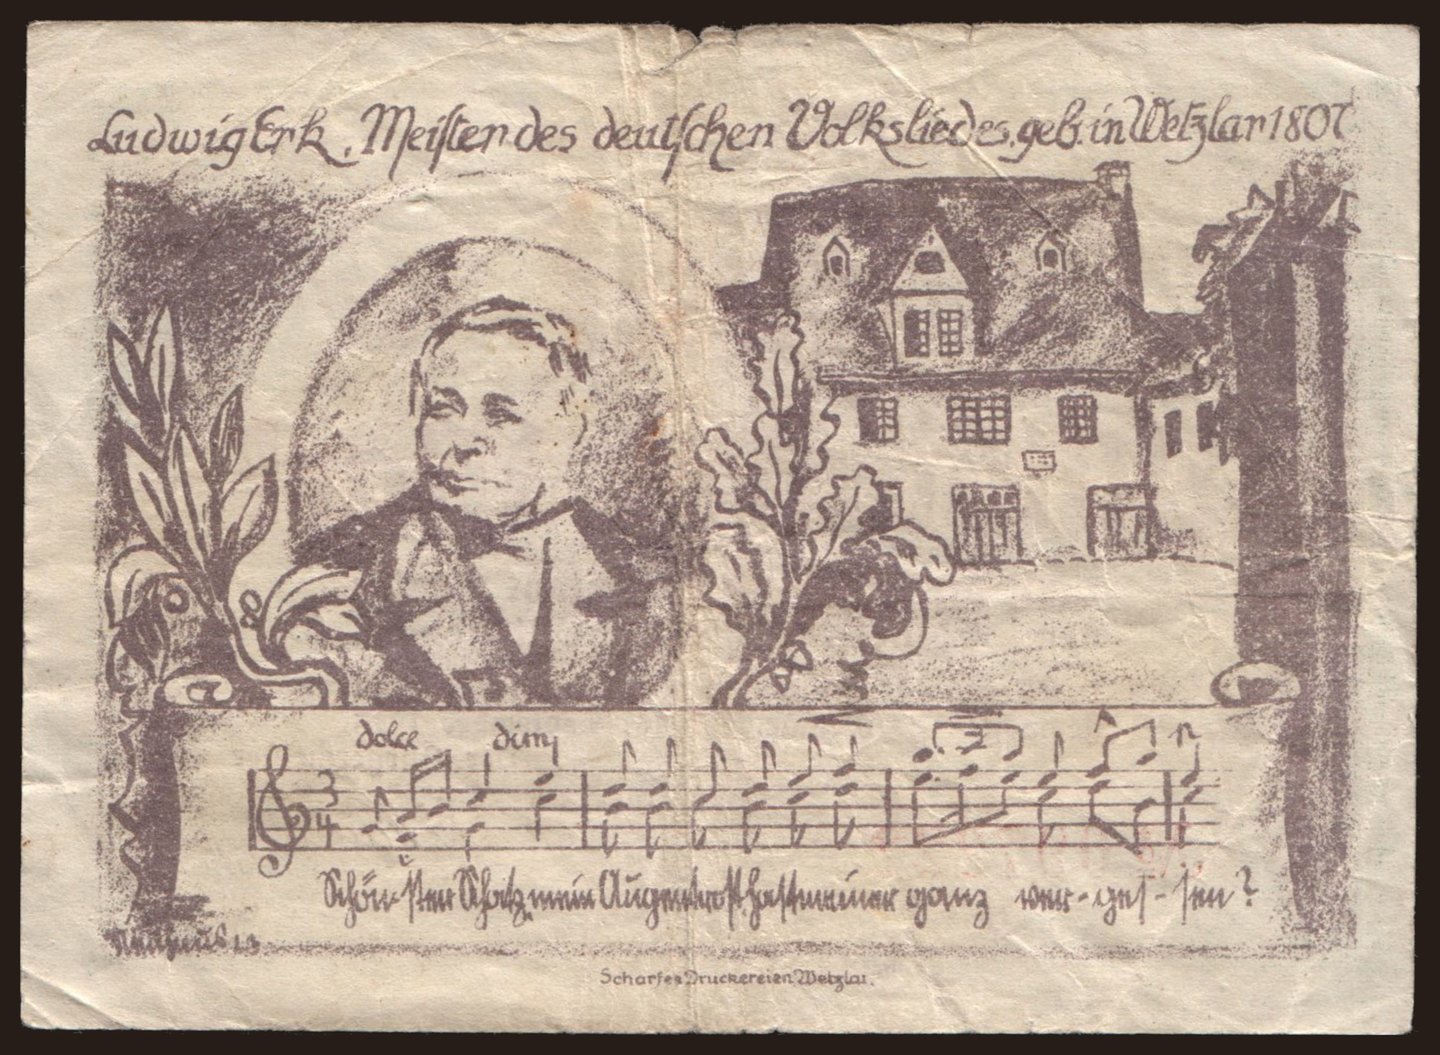 Ludwig Erk, Meister des deutschen Volksliedes, geb. in Wetzlar 1807
dolce dim
3
4
Schön-ster Schatz, mein Augentrost, hast meiner ganz ver-ges-sen?
23
Scharfes Druckereien Wetzlar.